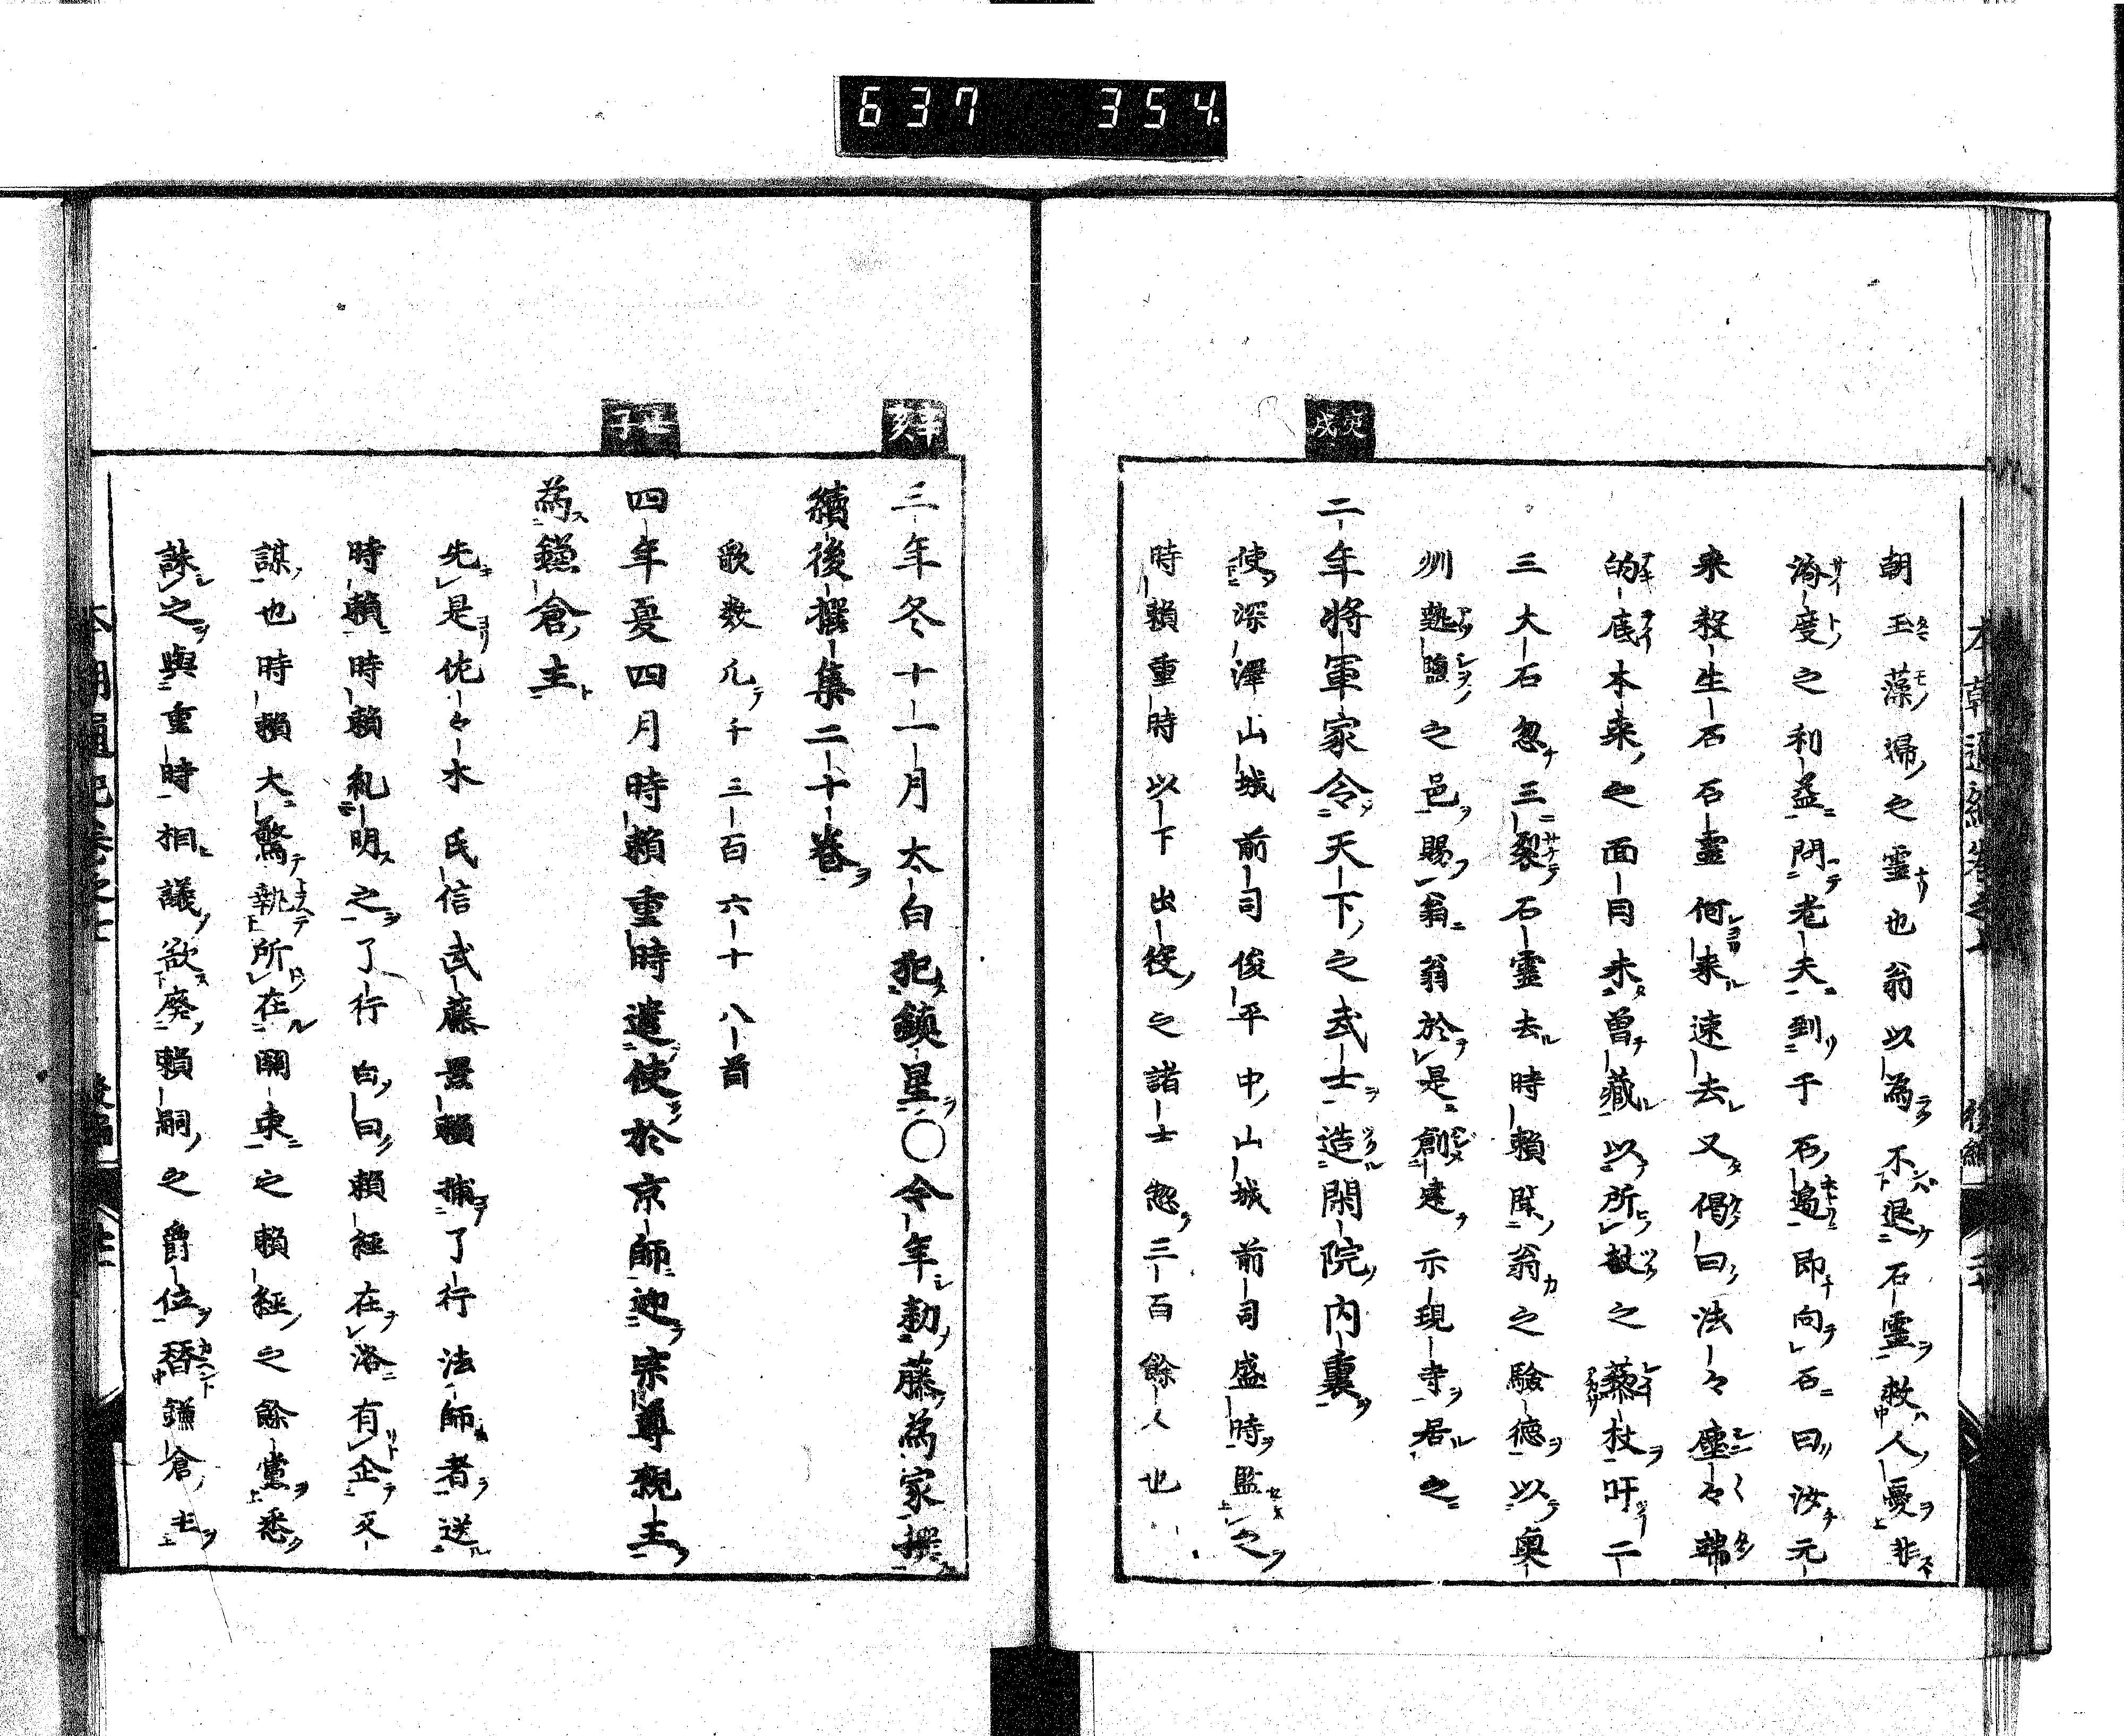 637 354
本朝通紀卷之七 後編 二十
朝玉藻婦之霊也翁以為不退石霊救人憂非
濟度之利益問老夫到于石邉即向石曰汝元
来殺生石石霊何来速去又偈曰法々塵々端
的底本来之面目未曽藏以所杖之藜杖吁二
三大石忽三裂石霊去時頼聞翁之験徳以奥
州熱塩之邑賜翁翁於是創建示現寺居之
庚戌
二年将軍家令天下之武士造閑院内裏
使深澤山城前司俊平中山城前司盛時監之
時頼重時以下出役之諸士惣三百餘人也
辛亥
三年冬十一月太白犯鎮星〇今年勅藤為家撰
續後撰集二十巻
歌数凡千三百六十八首
壬子
四年夏四月時頼重時遣使於京師迎宗尊親王
為鎌倉主
先是佐々木氏信武藤景頼捕了行法師者送
時頼時頼糺明之了行白曰頼経在洛有企叉
謀也時頼大驚執所在関東之頼経之餘黨悉
誅之與重時相議欲廃頼嗣之爵位替鎌倉主
本朝通紀卷之七